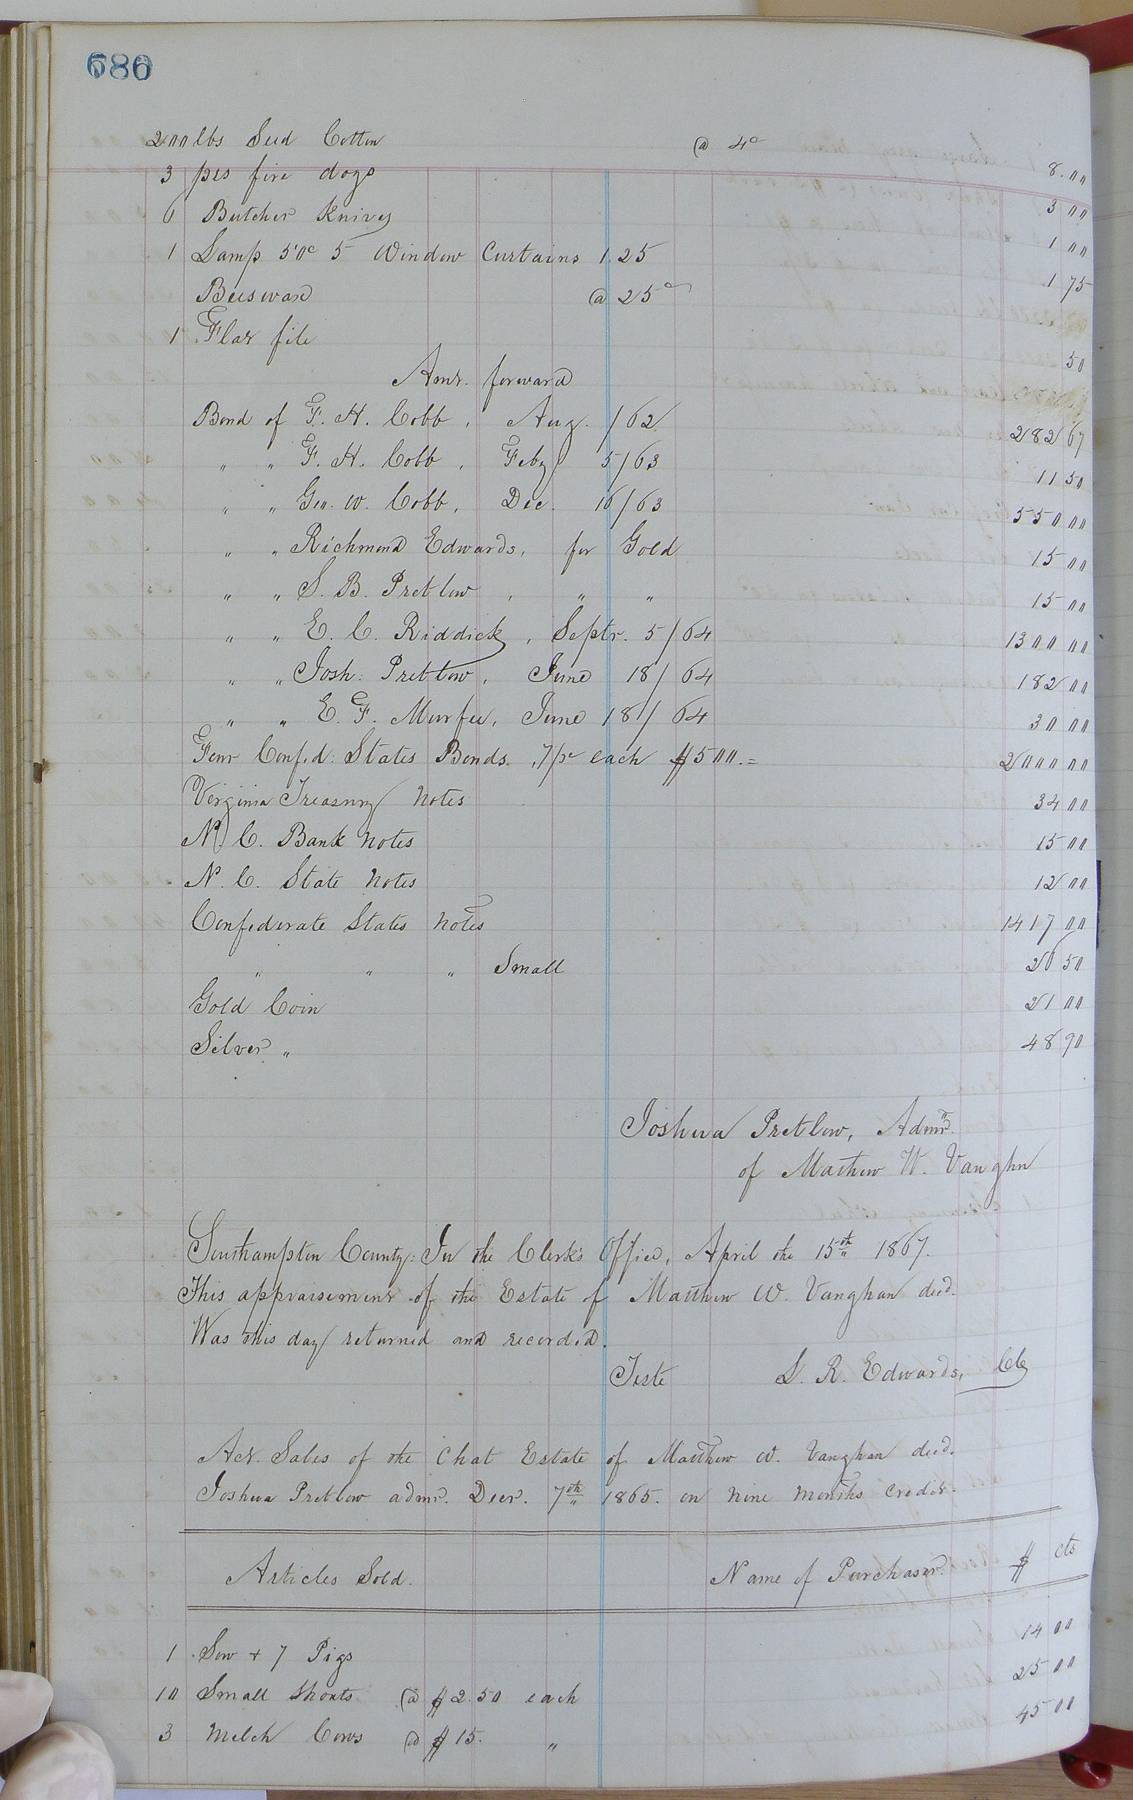 686
200 lbs Seed Cotton @ 4c 8.00
3 pes fire dogs 3 00
6 Butcher Knives 1 00
1 Lamp 50c 5 Window Curtains 1.25 1 75
Beeswax @ 25c
1 Flax file 50
Amt. forward
Bond of F. H. Cobb, Aug. /62 282 67
" " F. H. Cobb, Feby 5/63 11 50
" " Geo. W. Cobb, Dec. 16/63 550 00
" " Richmond Edwards, for Gold 15 00
" " S. B. Pretlow, " " 15 00
" " E. C. Riddick, Septr. 5/64 1300 00
" " Josh: Pretlow, June 18/64 182 00
" " E. F. Murfee, June 18/64 30 00
Four Confed: States Bonds, 7 pr each $500.= 2000 00
Virginia Treasury Notes 34 00
N. C. Bank Notes 15 00
N. C. State Notes 12 00
Confederate States Notes 1417 00
" " " Small 26 50
Gold Coin 21 00
Silver " 48 90
Joshua Pretlow, Admr.
of Mathew W. Vaughn
Southampton County: In the Clerk's Office, April the 15th 1867.
This appraisement of the Estate of Matthew W. Vaughan decd.
Was this day returned and recorded.
Teste L. R. Edwards, CC
Act. Sales of the Chat Estate of Matthew W. Vaughan decd.
Joshua Pretlow admr. Decr. 7th 1865. on nine months credit.
Articles Sold. Name of Purchaser. $ cts
1 Sow + 7 Pigs 14 00
10 Small Shoats @ $2.50 each 25 00
3 Milch Cows @ $15. " 45 00